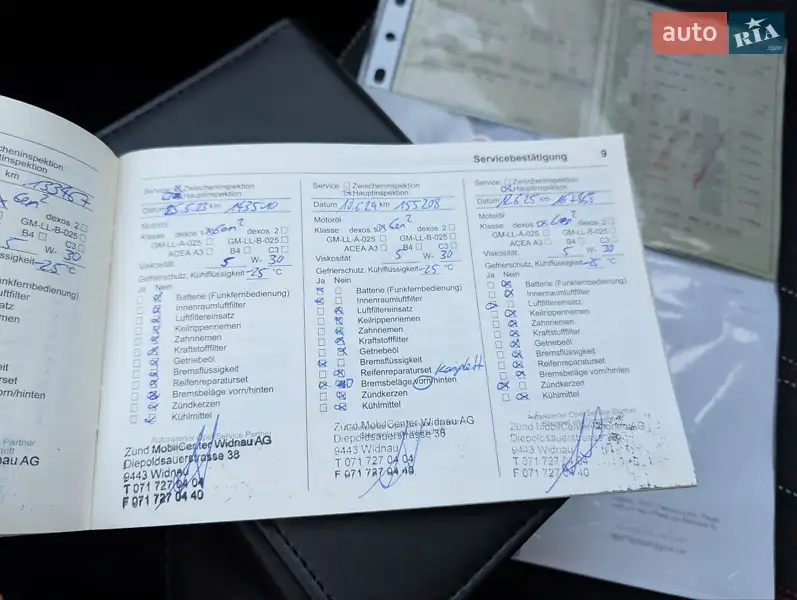 auto RIA .com
Servicebestätigung 9
cheninspektion
tinspektion
km 133457
Gen²
dexos 2
GM-LL-B-025
B4 C3
5 W- 30
ssigkeit -25 °C
unkfernbedienung)
uftfilter
satz
emen
el
it
rset
orn/hinten
Partner
au AG
Service Zwischeninspektion
Hauptinspektion
Datum 25.5.23 km
Motoröl
Klasse dexos 1 Gen² dexos 2
GM-LL-A-025 GM-LL-B-025
ACEA A3 B4 C3
Viskosität 5 W- 30
Gefrierschutz, Kühlflüssigkeit -25 °C
Ja Nein
Batterie (Funkfernbedienung)
Innenraumluftfilter
Luftfiltereinsatz
Keilrippenriemen
Zahnriemen
Kraftstofffilter
Getriebeöl
Bremsflüssigkeit
Reifenreparaturset
Bremsbeläge vorn/hinten
Zündkerzen
Kühlmittel
Autorisierter Opel Service Partner
Zünd MobilCenter Widnau AG
Diepoldsauerstrasse 38
9443 Widnau
T 071 727 04 04
F 071 727 04 40
Service Zwischeninspektion
Hauptinspektion
Datum 12.6.24 km 155208
Motoröl
Klasse dexos 1 Gen² dexos 2
GM-LL-A-025 GM-LL-B-025
ACEA A3 B4 C3
Viskosität 5 W- 30
Gefrierschutz, Kühlflüssigkeit -25 °C
Ja Nein
Batterie (Funkfernbedienung)
Innenraumluftfilter
Luftfiltereinsatz
Keilrippenriemen
Zahnriemen
Kraftstofffilter
Getriebeöl
Bremsflüssigkeit
Reifenreparaturset Komplett
Bremsbeläge vorn/hinten
Zündkerzen
Kühlmittel
Zünd MobilCenter Widnau AG
Diepoldsauerstrasse 38
9443 Widnau
T 071 727 04 04
F 071 727 04 40
Service Zwischeninspektion
Hauptinspektion
Datum 12.6.25 km
Motoröl
Klasse dexos 1 Gen² dexos 2
GM-LL-A-025 GM-LL-B-025
ACEA A3 B4 C3
Viskosität 5 W- 30
Gefrierschutz, Kühlflüssigkeit -25 °C
Ja Nein
Batterie (Funkfernbedienung)
Innenraumluftfilter
Luftfiltereinsatz
Keilrippenriemen
Zahnriemen
Kraftstofffilter
Getriebeöl
Bremsflüssigkeit
Reifenreparaturset
Bremsbeläge vorn/hinten
Zündkerzen
Kühlmittel
Autorisierter Opel Service Partner
Zünd MobilCenter Widnau AG
Diepoldsauerstrasse 38
9443 Widnau
T 071 727 04 04
F 071 727 04 40